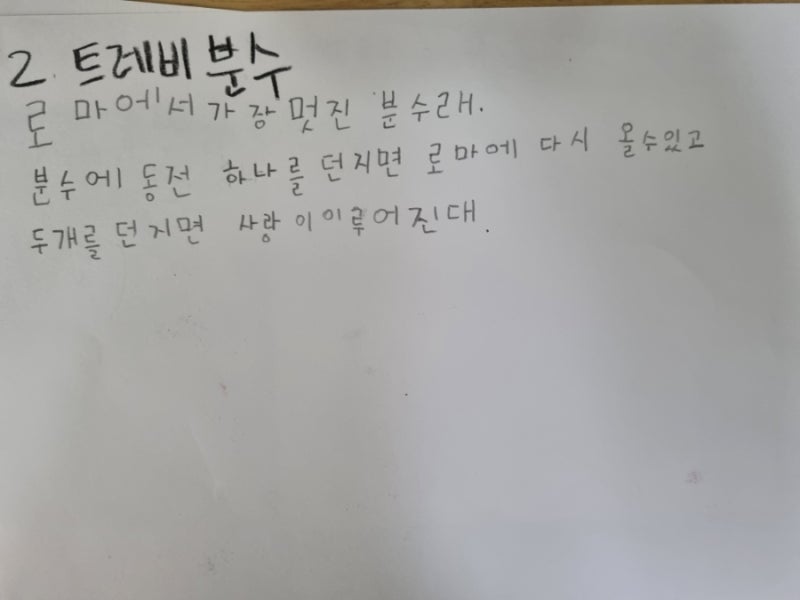 2. 트레비 분수
로마에서 가장 멋진 분수래.
분수에 동전 하나를 던지면 로마에 다시 올수있고
두개를 던지면 사랑이이루어진대.